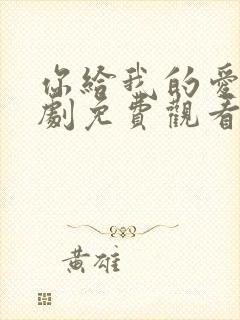 你給我的愛
劇免費觀看
黃雄